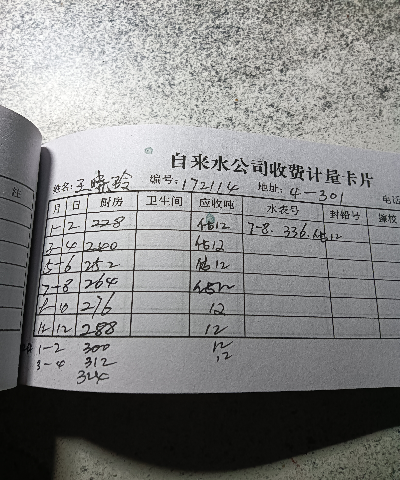 自来水公司收费计量卡片
姓名:王晓玲 编号:172114 地址:4-301 电话
注
月 日 厨房 卫生间 应收吨 水表号 封铅号
1-2 228 12 7-8. 336. 12
3-4 240 12
5-6 252 12
7-8 264 12
9-10 276 12
11-12 288 12
1-2 300 12
3-4 312 12
324